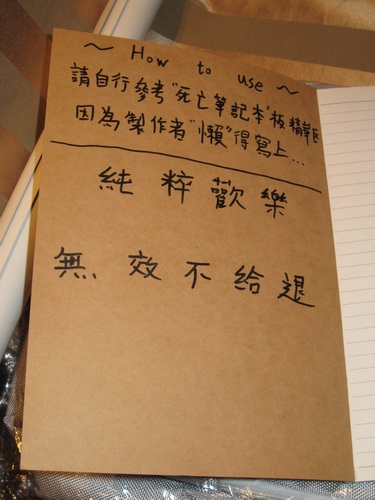 ～ How to use ～
請自行參考"死亡筆記本"板精華區
因為製作者"懶"得寫上...
純粹歡樂
無效不給退